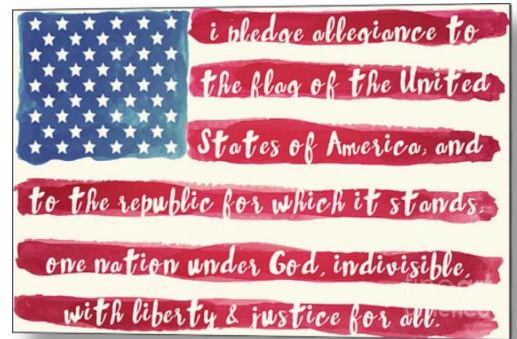 i pledge allegiance to
the flag of the United
States of America, and
to the republic for which it stands,
one nation under God, indivisible,
with liberty & justice for all.